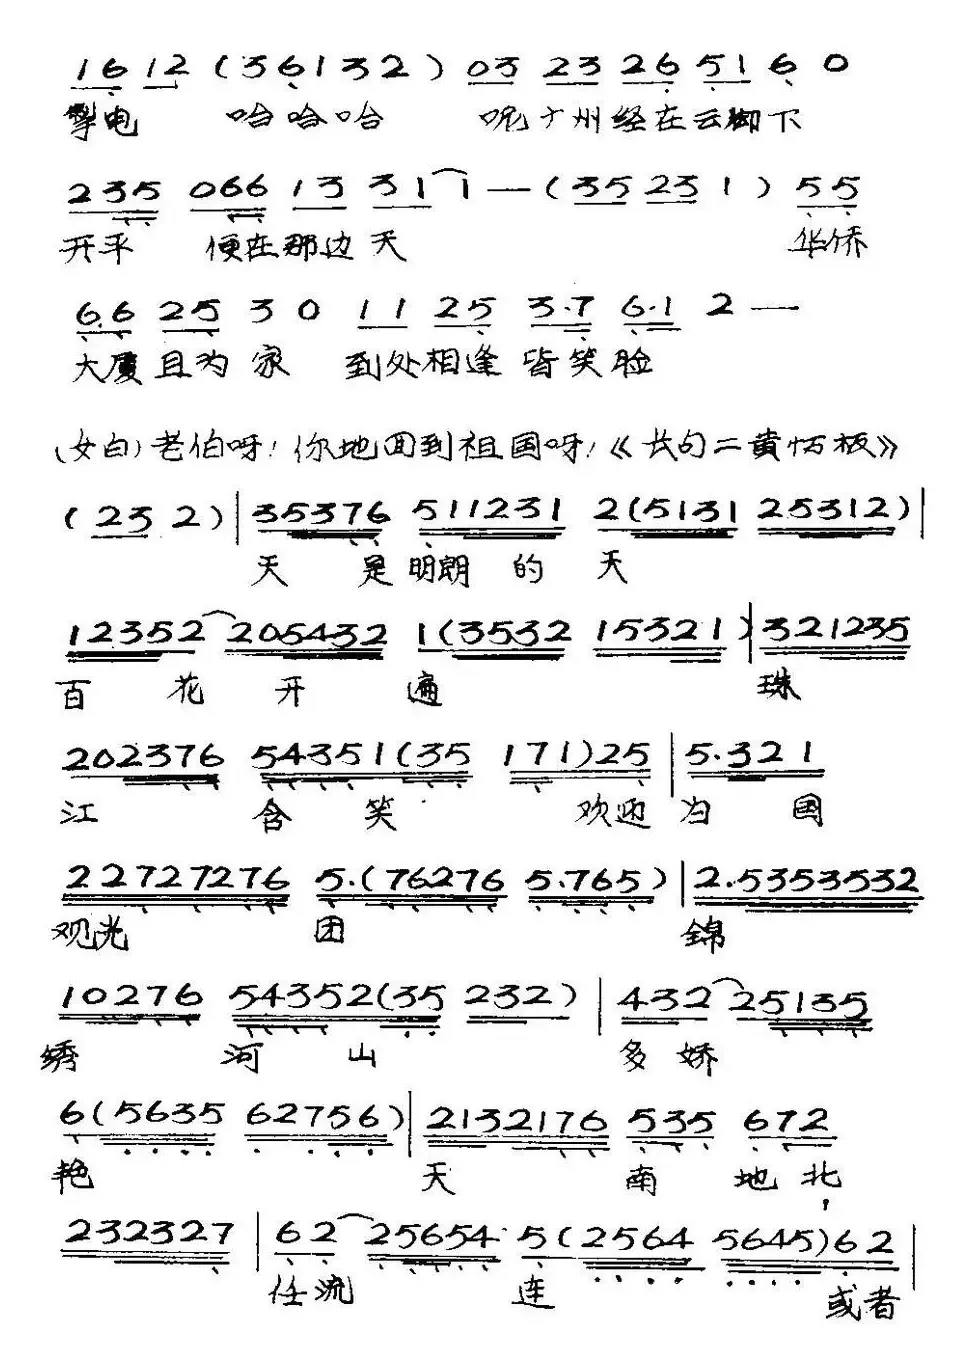 1 6 1 2 (3 6 1 3 2) 0 3 2 3 2 6 5 1 6 0
掣电 哈哈哈 呢广州经在云脚下
2 3 5 0 6 6 1 3 3 1 1 — (3 5 2 3 1) 5 5
开平 便在那边天 华侨
6.6 2 5 3 0 1 1 2 5 3.7 6.1 2 —
大厦且为家 到处相逢皆笑脸
(女白)老伯呀!你地回到祖国呀!《长句二黄慢板》
(2 3 2) | 3 5 3 7 6 5 1 1 2 3 1 2 (5 1 3 1 2 5 3 1 2) |
天是明朗的天
1 2 3 5 2 2 0 5 4 3 2 1 (3 5 3 2 1 5 3 2 1) | 3 2 1 2 3 5
百花开遍 珠
2 0 2 3 7 6 5 4 3 5 1 (3 5 1 7 1) 2 5 | 5.3 2 1
江含笑 欢迎归国
2 2 7 2 7 2 7 6 5.(7 6 2 7 6 5.7 6 5) | 2.5 3 5 3 5 3 2
观光团 锦
1 0 2 7 6 5 4 3 5 2 (3 5 2 3 2) | 4 3 2 2 5 1 3 5
绣河山 多娇
6 (5 6 3 5 6 2 7 5 6) | 2 1 3 2 1 7 6 5 3 5 6 7 2
艳 天南地北,
2 3 2 3 2 7 | 6 2 2 5 6 5 4 5 (2 5 6 4 5 6 4 5) 6 2 |
任流连 或者